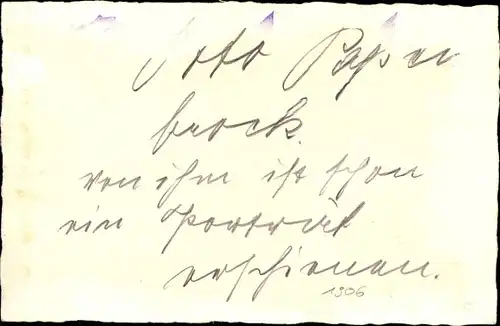 Otto Papen
brock.
von ihm ist schon
ein Porträt
erschienen.
1306